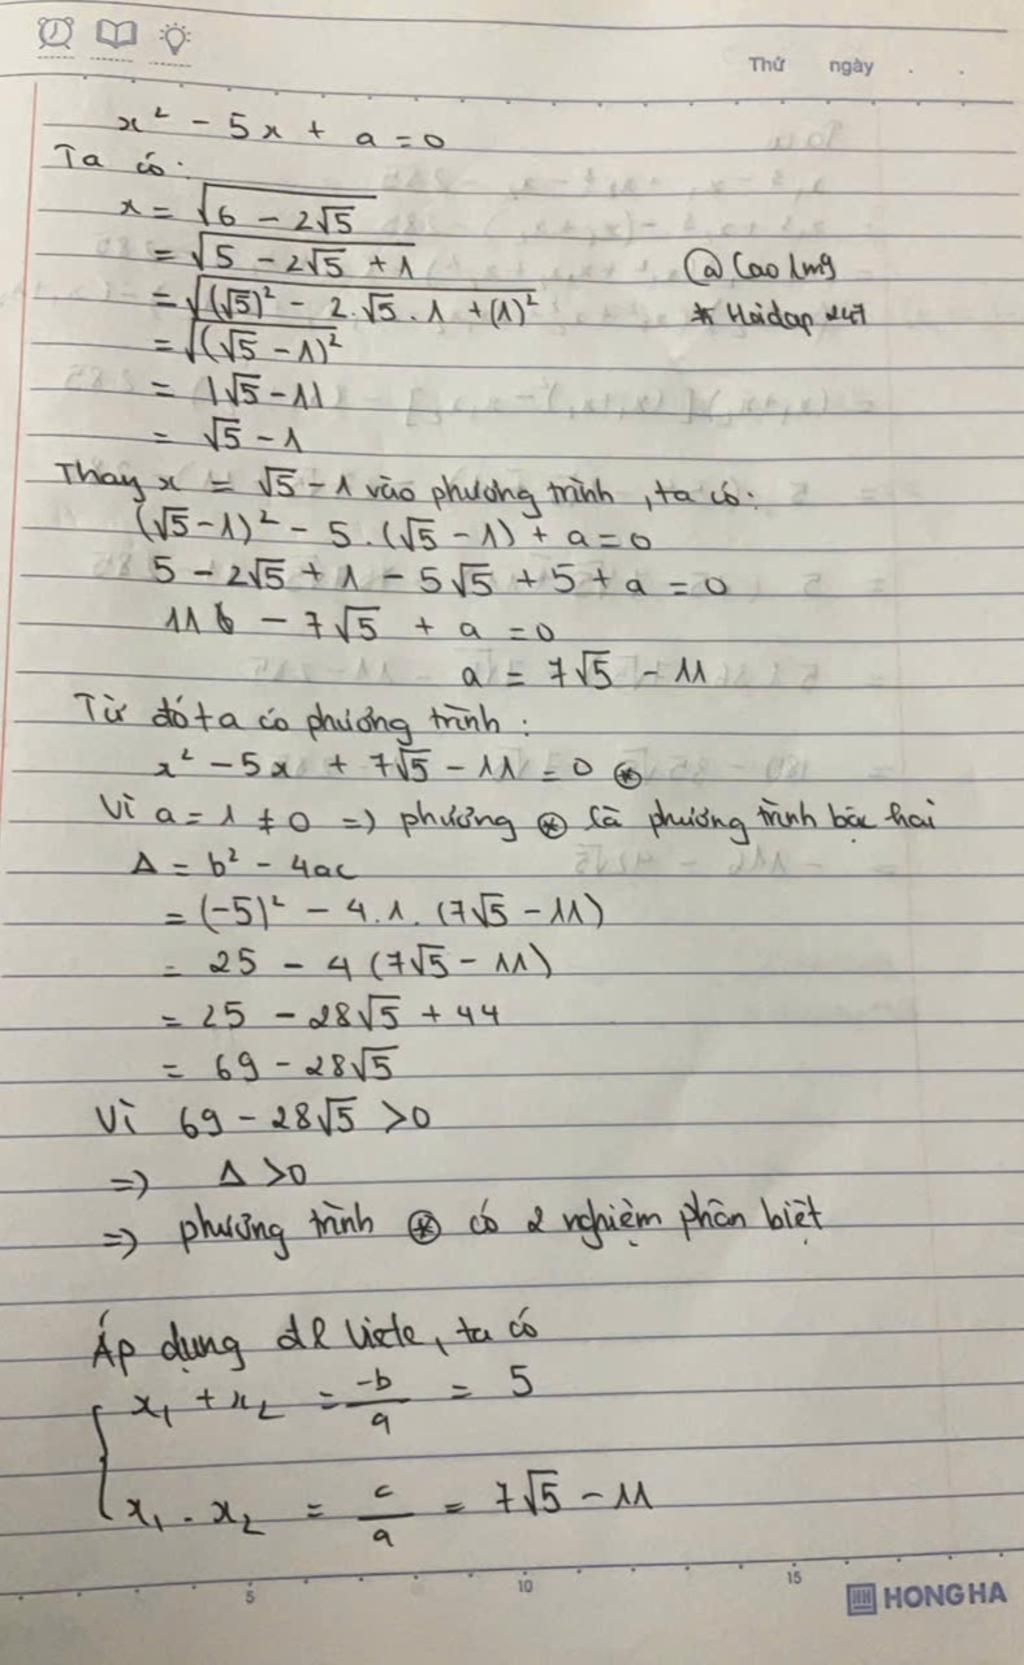 Thứ ngày . .
x² - 5x + a = 0
Ta có:
x = √(6 - 2√5)
= √(5 - 2√5 + 1)
= √((√5)² - 2.√5.1 + (1)²)
= √((√5 - 1)²)
= |√5 - 1|
= √5 - 1
@Cao lmg
* Hoidap 247
Thay x = √5 - 1 vào phương trình, ta có:
(√5 - 1)² - 5.(√5 - 1) + a = 0
5 - 2√5 + 1 - 5√5 + 5 + a = 0
11 - 7√5 + a = 0
a = 7√5 - 11
Từ đó ta có phương trình:
x² - 5x + 7√5 - 11 = 0 ⊛
Vì a = 1 ≠ 0 => phương ⊛ là phương trình bậc hai
Δ = b² - 4ac
= (-5)² - 4.1.(7√5 - 11)
= 25 - 4(7√5 - 11)
= 25 - 28√5 + 44
= 69 - 28√5
Vì 69 - 28√5 > 0
=> Δ > 0
=> phương trình ⊛ có 2 nghiệm phân biệt
Áp dụng đl Viete, ta có
x₁ + x₂ = -b/a = 5
x₁ . x₂ = c/a = 7√5 - 11
5 10 15
HONG HA